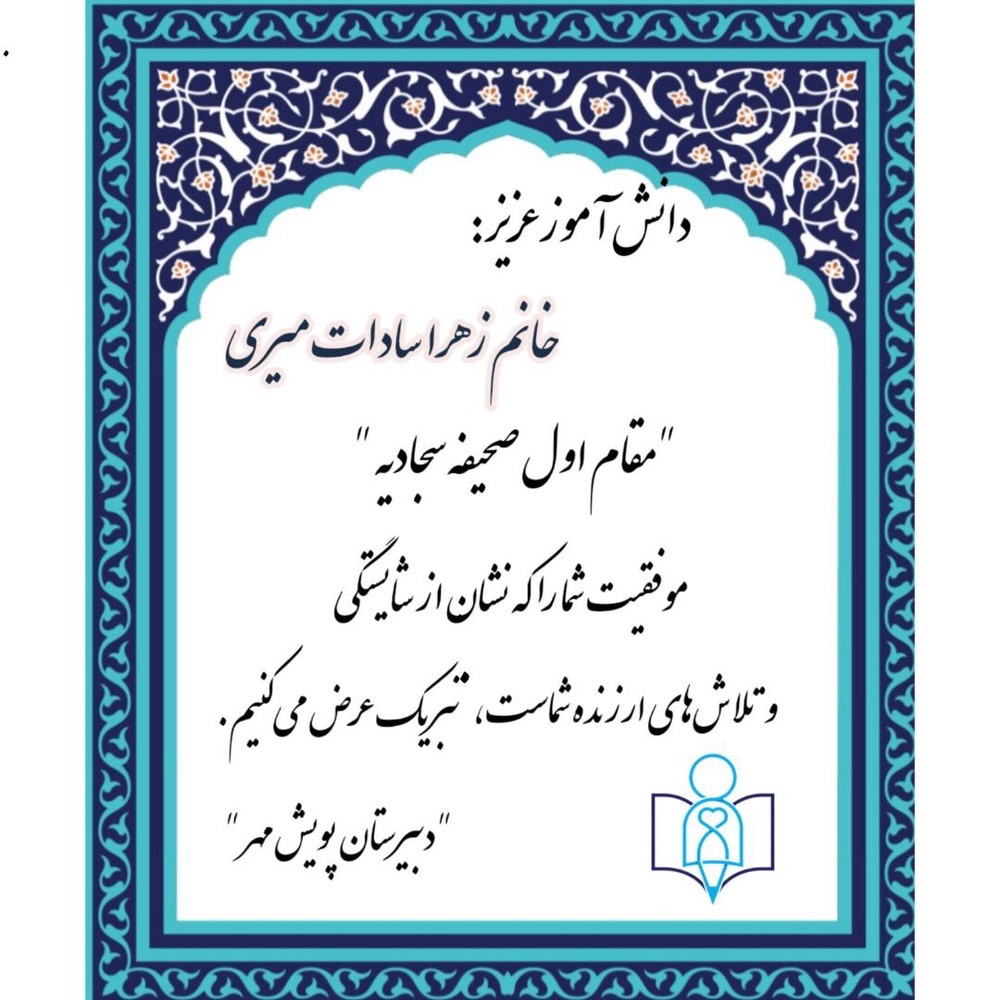 دانش آموز عزیز:
خانم زهرا سادات میری
"مقام اول صحیفه سجادیه"
موفقیت شما را که نشان از شایستگی
و تلاش های ارزنده شماست، تبریک عرض می کنیم.
"دبیرستان پویش مهر"